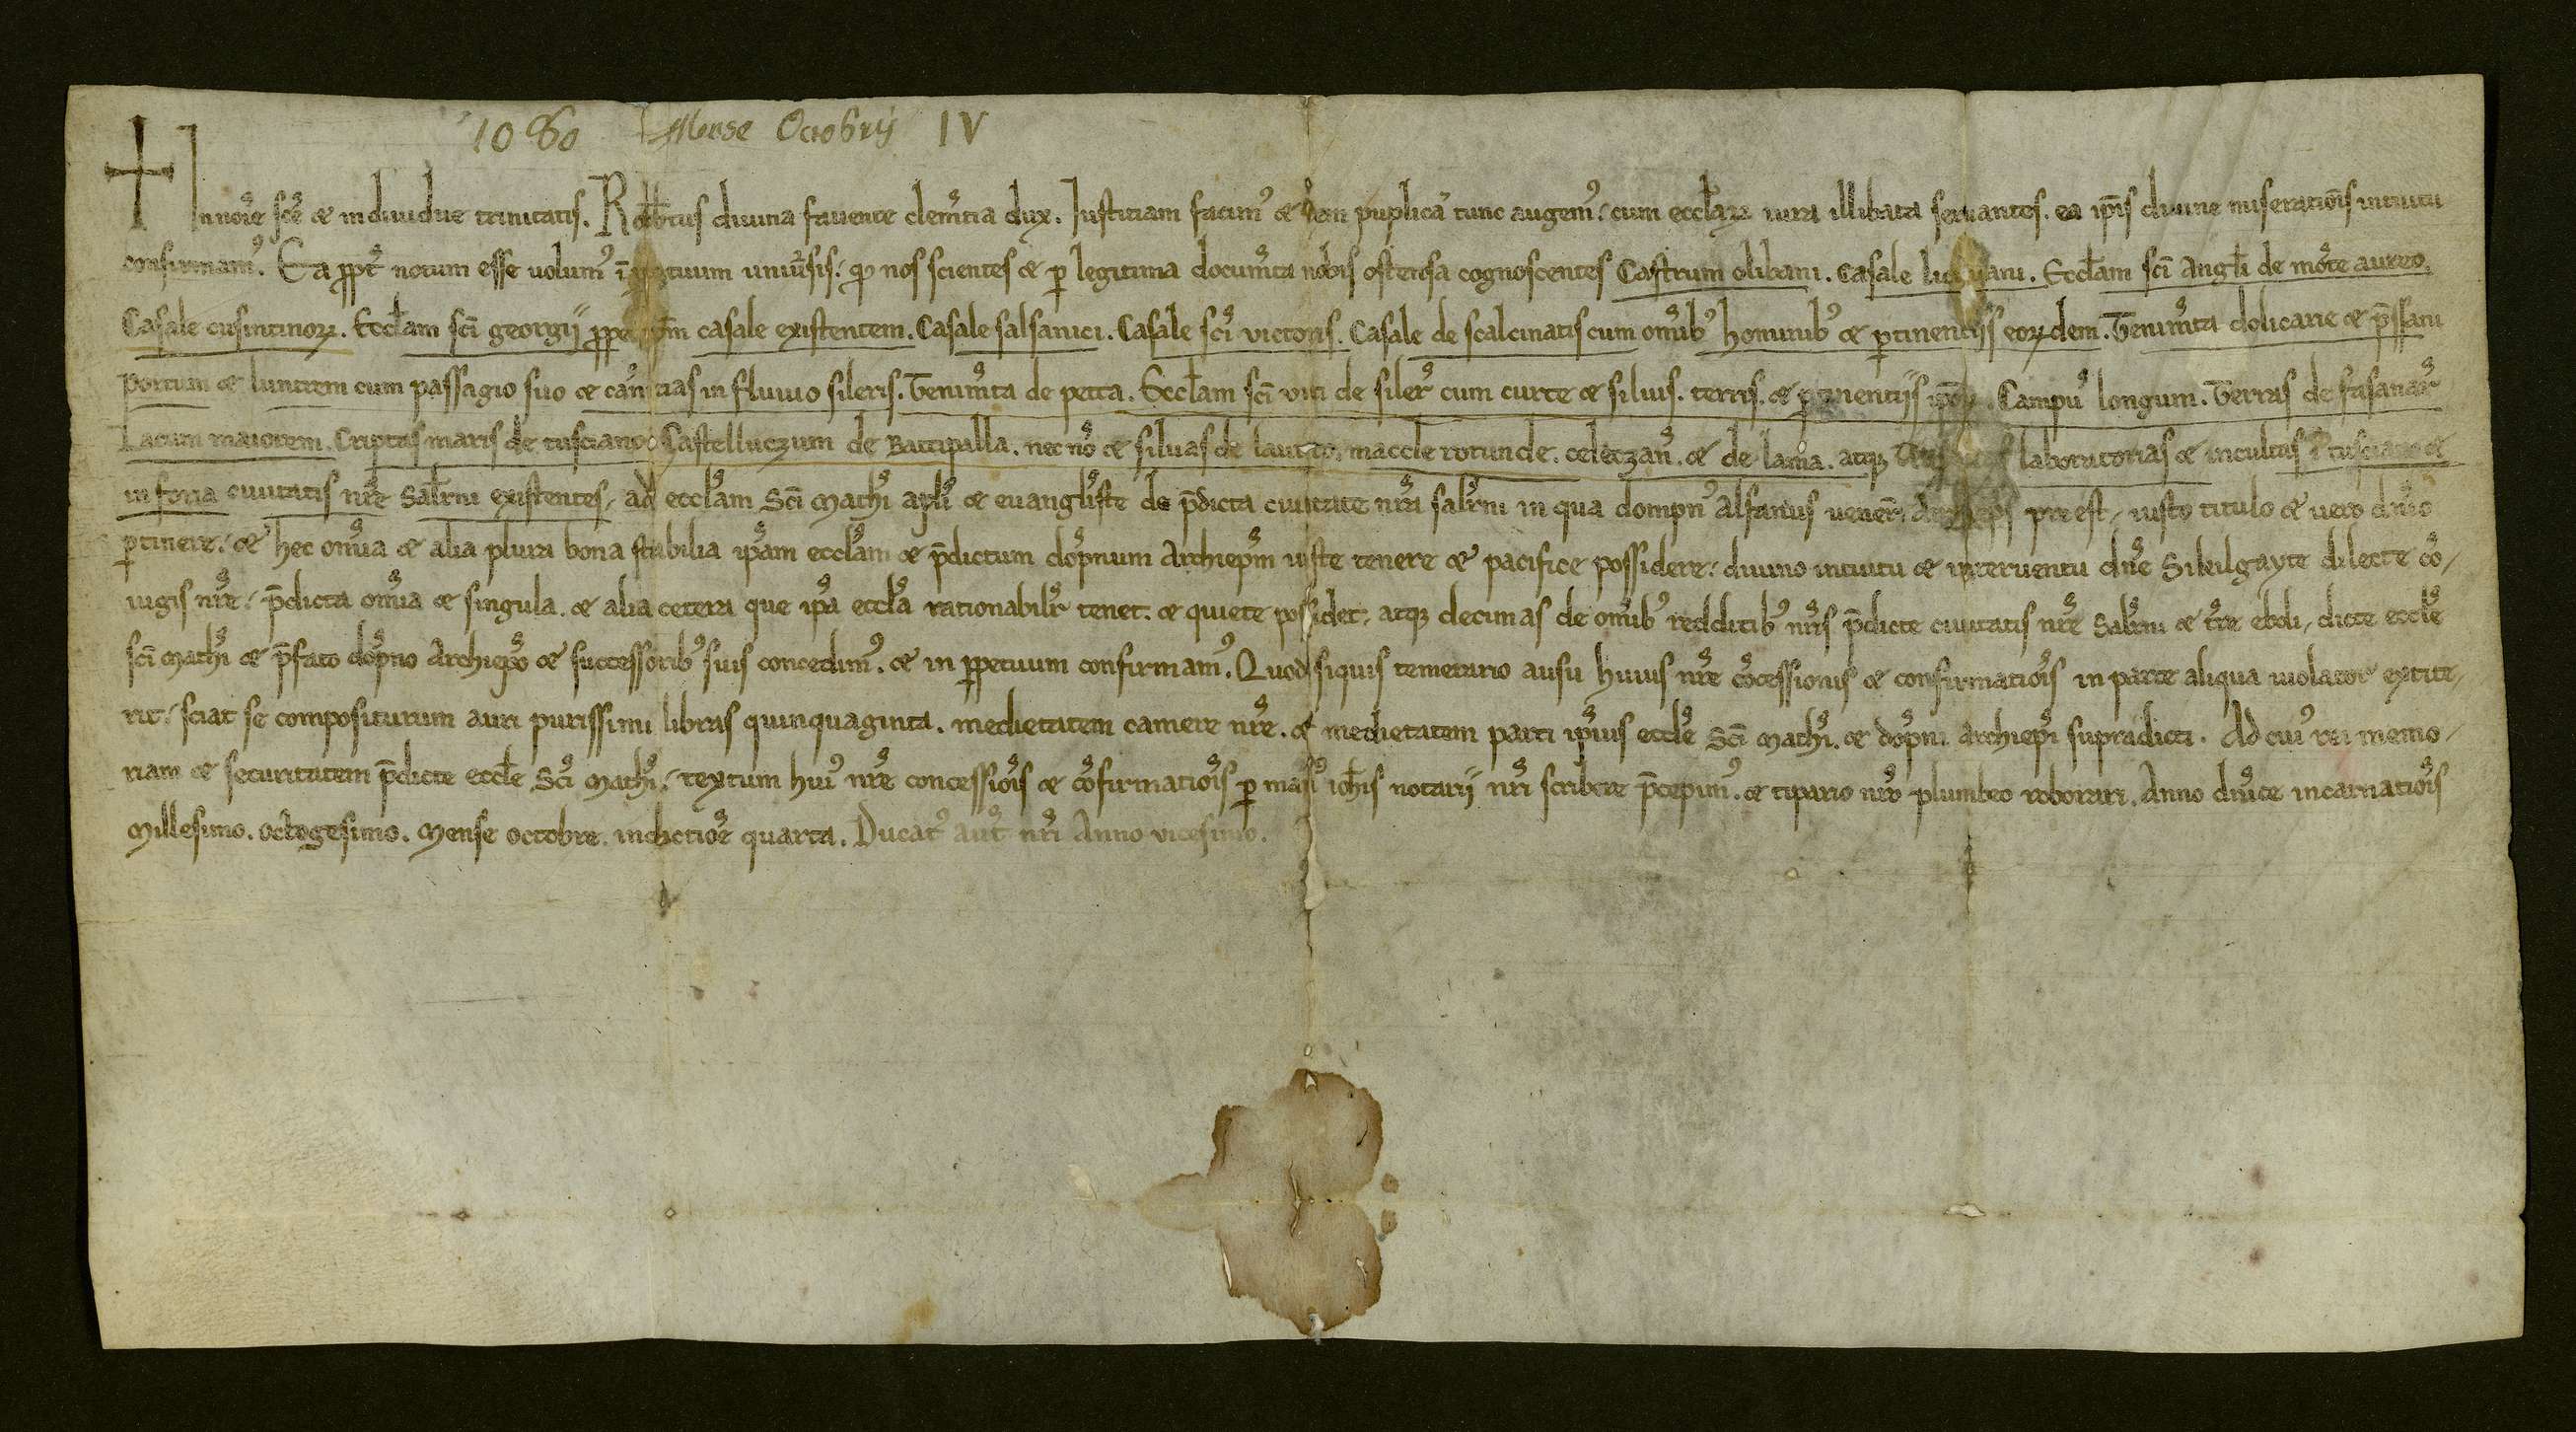 1080 Mense Octobrij IV
† In noīe scē et indiuidue trinitatis. Robbtus diuina fauente clem̄tia dux. Iustitiam facim᾽ et rem puplicā tunc augem᾽. cum eccl̄aꝝ iura illibata seruantes. ea ip̄is diuine miserationis intuitu
confirmam᾽. Ea ꝓpt̄ notum esse uolum᾽ ī ꝑpetuum uniūsis. qđ nos scientes et ꝑ legitima docum̄ta nobis ostensa cognoscentes Castrum olibani. Casale Eccl̄am sci Angl̄i de mōte aureo.
Casale cusintinoꝝ. Eccl̄am sci georgij casale existentem. Casale salsanici. Casale sci victoris. Casale de scalcinatis cum om̄ib᾽ hominib᾽ et ꝑtinentijs eoꝝdem. Tenim̄ta dolicarie et p̄ssani
Portum et luntrem cum passagio suo et in fluuio sileris. Tenim̄ta de petta. Eccl̄am sci viti de siler̄ cum curte et siluis. terris. et ꝑtinentijs Campū longum. Terras de fasanar̄
Lacum maiorem. Criptas maris de tusciano. Castelluczum de Battipalla. nec nō et siluas de maccle rotunde. celeczan̄. et de lama. atqꝫ laboratorias et incultas ī tusciano et
in foria ciuitatis nr̄e Saler̄ni existentes, ad eccl̄am Sci Mathī apl̄i et euangl̄iste de p̄dicta ciuitate nr̄a saler̄ni in qua dompn᾽ Alfanus uener̄. preest, iusto titulo et uero dn̄io
ꝑtinere. et hec om̄ia et alia plura bona stabilia ip̄am eccl̄am et p̄dictum dop̄num Archiep̄m iuste tenere et pacifice possidere. diuino intuitu et interuentu dn̄e Sikilgayte dilecte cō-
iugis nr̄e. p̄dicta om̄ia et singula. et alia cetera que ip̄a eccl̄a rationabilit̄ tenet. et quiete possidet, atqꝫ decimas de om̄ib᾽ redditib᾽ nr̄is p̄dicte ciuitatis nr̄e Saler̄ni et tr̄e eboli, dicte eccl̄e
sci Mathī et p̄fato dop̄no Archiep̄o et successorib᾽ suis concedim᾽. et in ꝑpetuum confirmam᾽. Quod siquis temerario ausu huius nr̄e cōcessionis et confirmatiōis in parte aliqua uiolator extite-
rit, sciat se compositurum auri purissimi libras quinquaginta. medietatem camere nr̄e. et medietatem parti ip̄ius eccl̄e Sci Mathī. et dop̄ni Archiep̄i supradicti. Ad cui᾽ rei memo-
riam et securitatem p̄dicte eccl̄e Sci Mathī. textum hui᾽ nr̄e concessiōis et cōfirmatiōis ꝑ man᾽ ioh̄is notarij nr̄i scribere p̄cepim᾽. et tipario nr̄o plumbeo roborari. Anno dn̄ice incarnatiōis
Millesimo. octogesimo. Mense octobre. indictiōe quarta. Ducat᾽ aut̄ nr̄i Anno vicesimo.